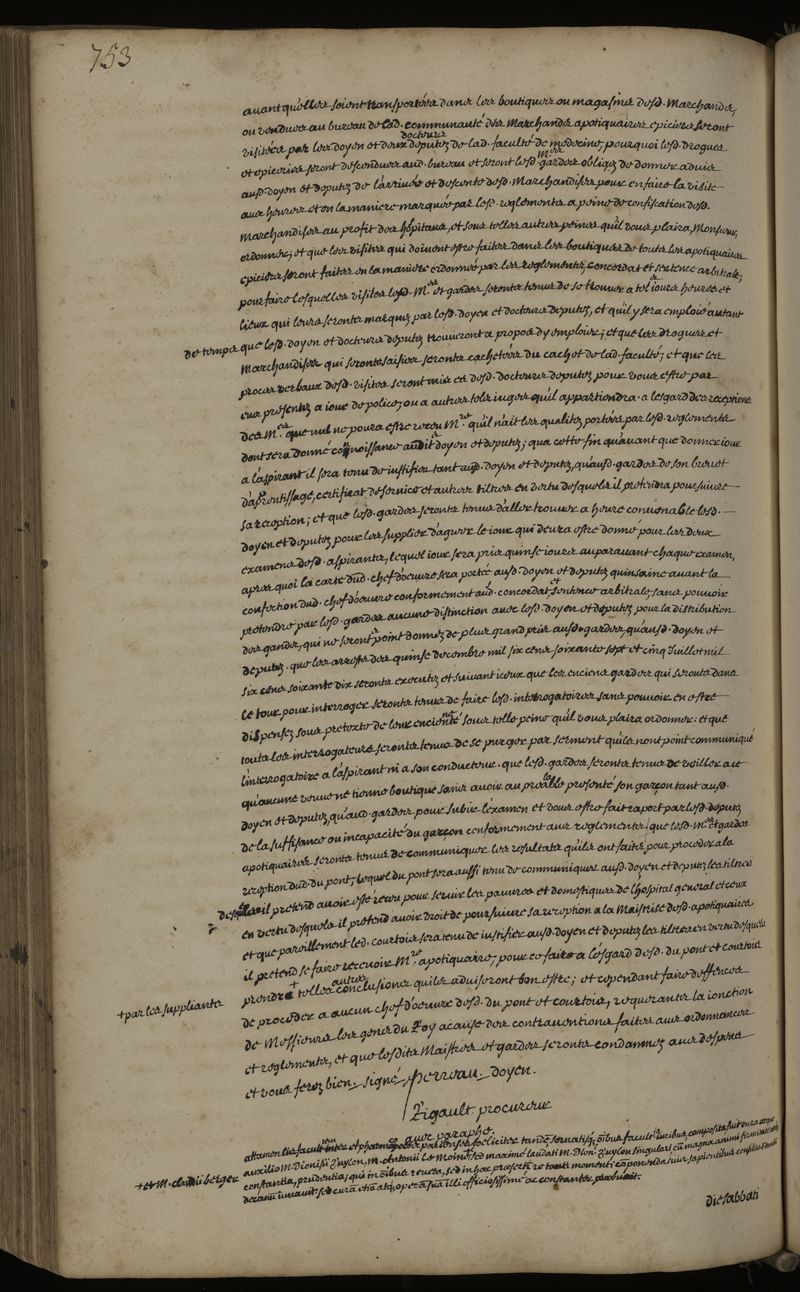 753
auant quelles soient transportées dans les boutiques ou magasins desd. Marchands,
ou vendues au bureau de lad. communauté des Marchands apotiquaires epiciers seront
visitées par les doyen et deux docteurs deputez de lad. faculté de medecine, pourquoi lesd. drogues
et epiceries seront descendues aud. bureau et seront lesd. M.es gardes obligez de donner aduis
ausd. doyen et deputez de l'arriuée et descente desd. Marchandises pour en faire la visite
aux heures et en la maniere marquée par lesd. reglements a peine de confiscation desd.
Marchandises au profit des hôpitaux, et sous telles autres peines qu'il vous plaira, Messieurs,
ordonner; et que les visites qui doiuent estre faites dans les boutiques de touts les apotiquaires
epiciers seront faites en la maniere ordonnée par les reglements, concordat et sentence arbitrale;
pour faire lesquelles visites lesd. M.es et gardes seronts tenus de se trouuer a tels iours heures et
lieux qui leurs seronts marquez par lesd. doyen et docteurs deputez, et qu'il y sera emploié autant
de temps que lesd. doyen et docteurs deputez trouueront a propos d'y emploier; et que les drogues et
Marchandises qui seronts saisies seronts cachetées du cachet de lad. faculté; et que les
procez verbaux desd. visites seront mis ès desd. docteurs deputez pour vous estre par
eux presentez a iour de police, ou a autres tels iuges qu'il appartiendra. a lesgard des receptions
des M.es que nul ne poura estre receu M.e qu'il n'ait les qualitez portées par lesd. reglements
dont sera donné connoissance ausdits doyen et deputez; qua cette fin quauant que donner iour
a l'aspirant il sera tenu de iustifier tant ausd. doyen et deputez, quausd. gardes de son breuet
d'aprentissage, certificat de seruice et autres tiltres en vertu desquels il pretendra poursuiure
sa reception; et que lesd. gardes seronts tenus d'aller trouuer a heure conuenable lesd.
doyen et deputez pour les supplier d'agreer le iour qui deura estre donné pour les deux
examens desd. aspirants, lequel iour sera pris quinse iours auparauant chaque examen,
apres quoi la carte dud. chef d'oeuure sera portée ausd. doyen et deputez quinsaine auant la
confection dud. chef d'oeuure conformement aud. concordat et sentence arbitrale, sans pouuoir
pretendre par lesd. gardes aucune distinction auec lesd. doyen et deputez pour la distribution
des gands, qui ne seront point donnez de plus grand prix ausd. gardes, quausd. doyen et
deputez. que les arrests des quinse decembre mil six cens soixante sept et cinq Juillet mil
six cens soixante dix seronts executez et suiuant iceux que les enciens gardes qui seronts dans
le tour pour interroger seronts tenus de faire lesd. interrogatoires sans pouuoir en estre
dispensez sous pretexte de leur encienté sous telle peine qu'il vous plaira ordonner: et que
touts les interrogateurs seronts tenus de se purger par serment qu'ils n'ont point communiqué
l'interrogatoire a l'aspirant ni a son conducteur. que lesd. gardes seronts tenus de veiller a ce
qu'aucune veuue ne tienne boutique sans auoir au prealable presenté son garçon tant ausd.
doyen et deputez, quausd. gardes pour subir l'examen et vous estre fait raport par lesd. deputez
de la suffisance ou incapacité du garçon conformement aux reglements; que lesd. M.es et gardes
apotiquaires seronts tenus de communiquer les resultats qu'ils ont faits pour proceder a la
reception dud. du pont, lequel du pont sera aussi tenu de communiquer ausd. doyen et deputez les tiltres
en vertu desquels il pretend auoir esté receu pour seruir les pauures et domestiques de lhospital general et ceux
desquels il pretend auoir droit de poursuiure sa reception a la Maistrise desd. apotiquaires
et que pareillement led. courtois sera tenu de iustifier ausd. doyen et deputez les tiltres en vertu desquels
il pretend se faire receuoir M.e apotiquaire, pour ce fait a lesgard desd. du pont et courtois
+par les supplians
prendre + telles autres conclusions qu'ils aduiseront bon estre; et cependant faire deffences
de proceder a aucun chef d'oeuure desd. du pont et courtois, requerants la ionction
de Messieurs les gens du Roy a cause des contrauentions faites aux ordonnances
et reglements, et que lesdits Maistres et gardes seronts condamnez aux despens
et vous ferez bien. signé, Perreau. doyen.
Rigault procureur
auec paraphe.
+et M. claudii berger
constantia, prudentia, qui in oibus rebus, sed in hac praesertim
decanum iuuauit: sed curam etiam atque operam suam illi officiosissime ac constanter praebuit.
die sabbati